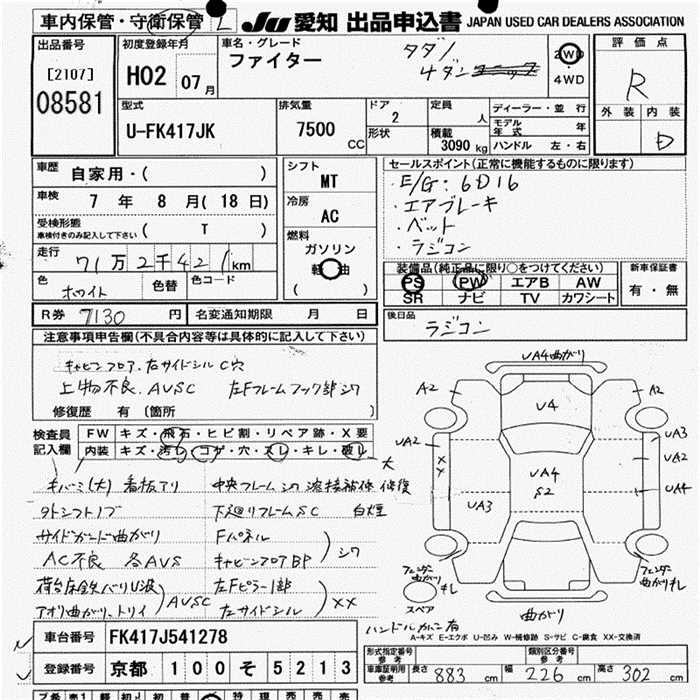 車内保管・守衛保管
JU 愛知 出品申込書 JAPAN USED CAR DEALERS ASSOCIATION
出品番号
[2107]
08581
初度登録年月
H02 07月
車名・グレード
ファイター
タダノ
4ダン
2WD
・
4WD
評価点
R
外装 内装
D
型式
U-FK417JK
排気量
7500 CC
ドア
2
形状
定員
人
積載
3090 kg
ディーラー・並行
モデル年式 年
ハンドル 左・右
車歴
自家用・( )
車検
7 年 8 月( 18 日)
受検形態
車検付きのみ記入して下さい
( T )
走行
71万2千421km
色
ホワイト
色替
色コード
シフト
MT
冷房
AC
燃料
ガソリン
軽油
( )
セールスポイント(正常に機能するものに限ります)
・E/G:6D16
・エアブレーキ
・ベット
・ラジコン
装備品(純正品に限り○をつけてください)
PS PW エアB AW
SR ナビ TV カワシート
新車保証書
有・無
R券 7130 円
名変通知期限 月 日
後日品
ラジコン
注意事項申告欄(不具合内容等は具体的に記入して下さい)
キャビンフロア.右サイドシル C穴
上物不良.AVSC 左Fフレームフック部シワ
修復歴 有〔箇所 〕
検査員記入欄
FW キズ・飛石・ヒビ割・リペア跡・X要
内装 キズ・汚レ・コゲ・穴・スレ・キレ・破レ
大
キバミ(大) 看板アリ
中央フレーム シワ 溶接被体 修復
タトシフトノブ
下廻リフレームSC 白煙
サイドガード曲がり
Fパネル
AC不良 各AVS
キャビンフロアBP
シワ
荷台床鉄バリU波
アオリ曲がり、トリイ
AVSC
左Fピラー1部
左サイドシル
XX
UA4曲がり
A2
U4
A2
UA2
UA3
UA2
XX
UA4
S2
UA3
UA4
フェンダー曲がりキレ
スペア
フェンダー曲がりキレ
曲がり
ハンドルカバー有
A-キズ E-エクボ U-凹み W-補修跡 S-サビ C-腐食 XX-交換済
車台番号 FK417J541278
登録番号 京都 100 そ 5213
形式指定番号
参考
類別区分番号
参考
車庫証明用
参考
長さ 883 cm 幅 226 cm 高さ 302 cm